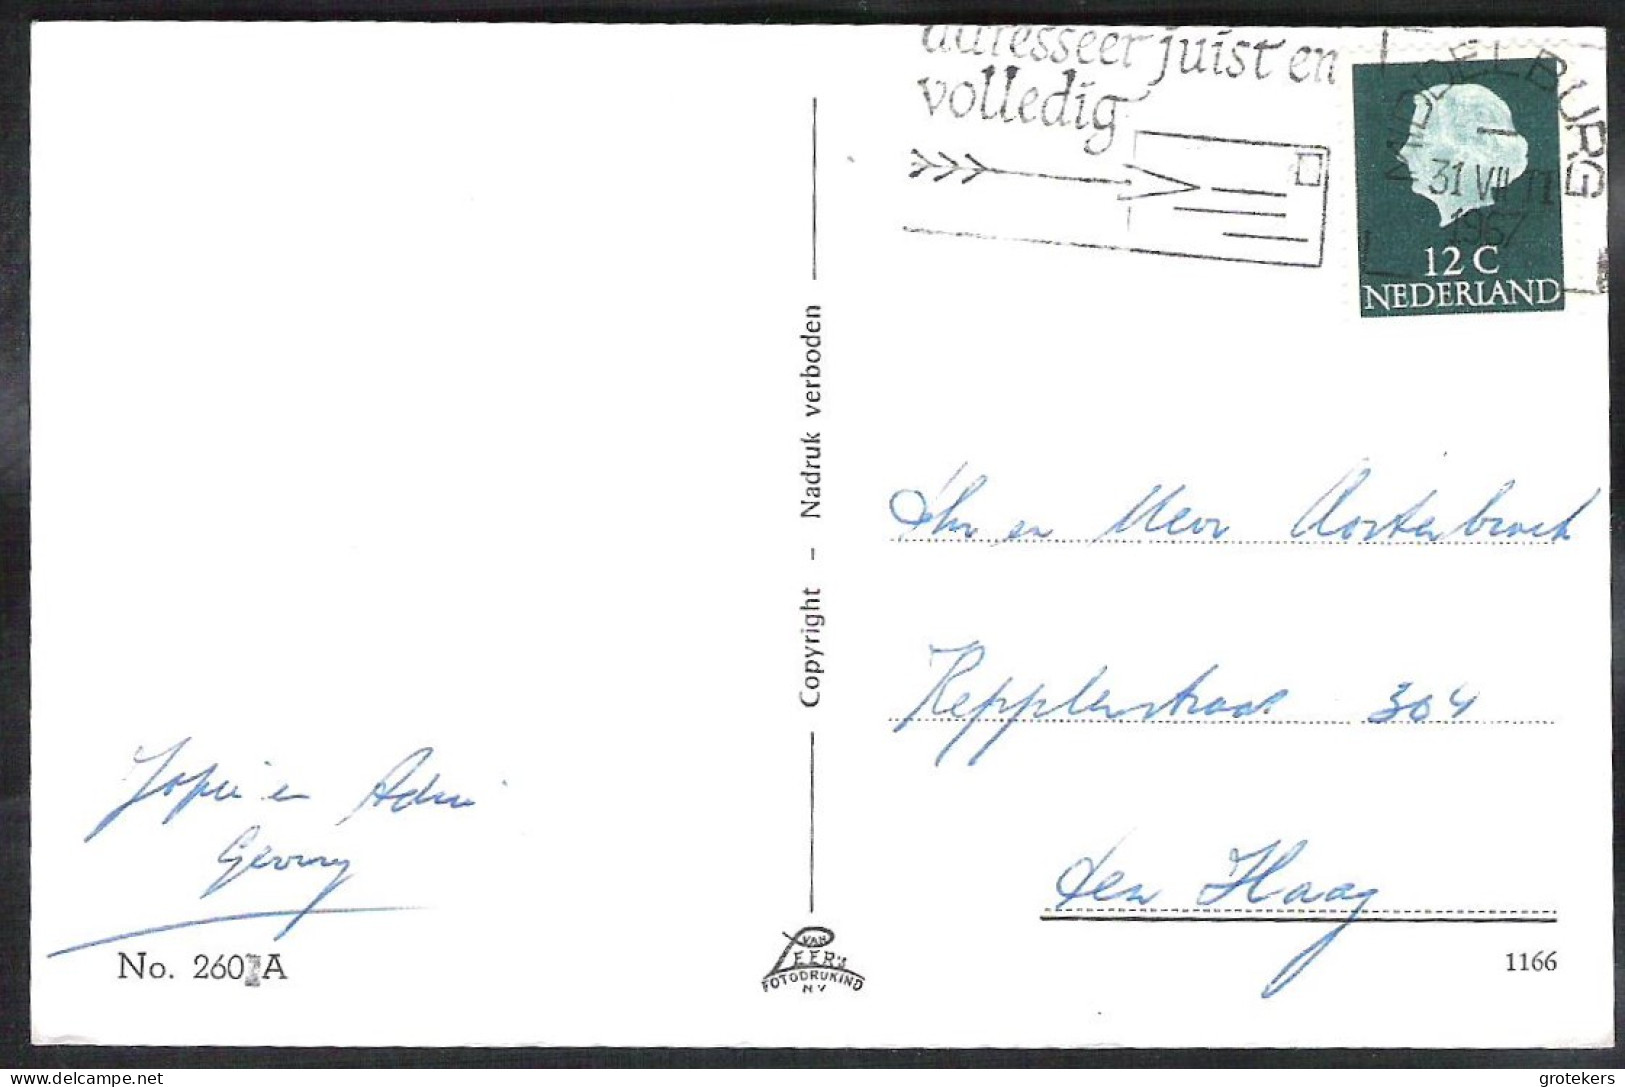 adresseer juist en
volledig
MIDDELBURG
31 VII 11
1967
12 C
NEDERLAND
Copyright - Nadruk verboden
Fam en Mevr Oosterbroek
Kepplerstraat 304
den Haag
Jopie en Adrie
No. 260 A
VAN
LEER'S
FOTODRUKIND
N V
1166
grotekers